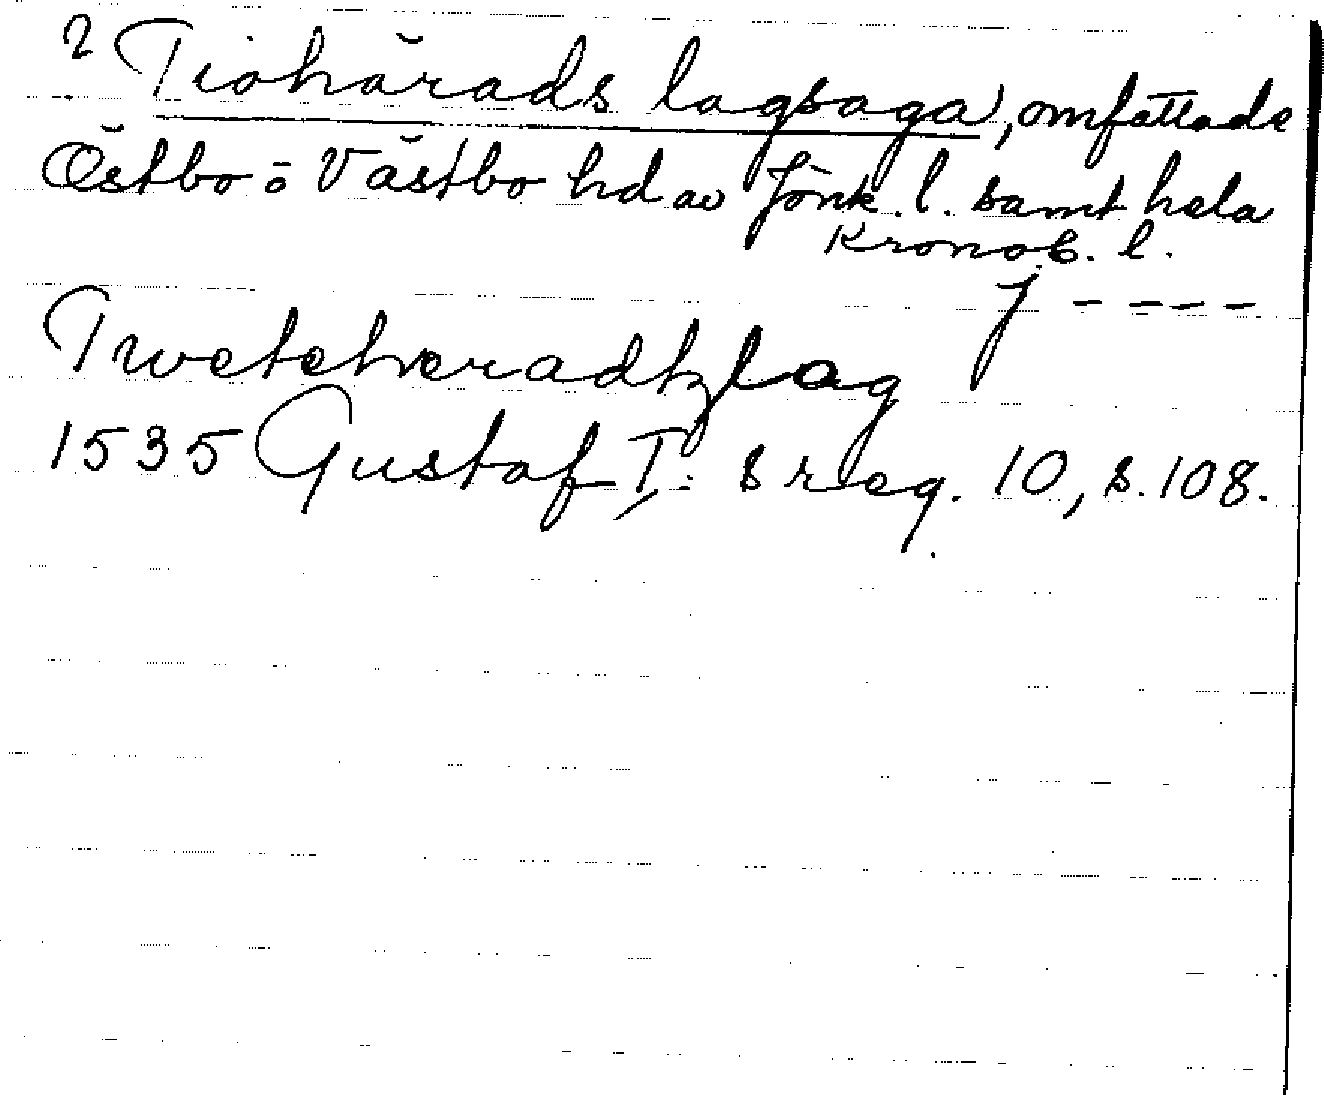 ? Tiohärads lagsaga), omfattade
Östbo o Västbo hd av Jönk. l. samt hela
Kronob. l.
J - - - -
Tweteheradtzlag
1535 Gustaf I: s reg. 10, s. 108.